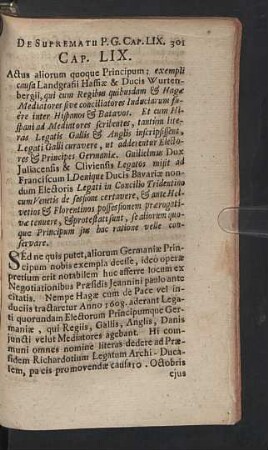 DE SUPREMATU P. G. CAP. LIX. 301
CAP. LIX.
Actus aliorum quoque Principum; exempli
causa Landgrafii Hassiæ & Ducis Wurten-
bergii, qui cum Regibus quibusdam & Hagæ
Mediatores sive conciliatores Induciarum fu-
ere inter Hispanos & Batavos. Et cum Hi-
spani ad Mediatores scribentes, tantum lite-
ras Legatis Galliæ & Angliæ inscripsissent,
Legati Galli curavere, ut adderentur Electo-
res & Principes Germaniæ. Guilielmus Dux
Juliacensis & Cliviensis Legatos misit ad
Franciscum I. Denique Ducis Bavariæ non-
dum Electoris Legati in Concilio Tridentino
cum Venetis de sessione certavere, & ante Hel-
vetios & Florentinos possessionem prærogati-
væ tenuere, & protestati sunt, se aliorum quo-
que Principum jus hac ratione velle con-
servare.
SEd ne quis putet, aliorum Germaniæ Prin-
cipum nobis exempla deesse, ideo operæ
pretium erit notabilem huc afferre locum ex
Negotiationibus Præsidis Jeannini paulo ante
citatis. Nempe Hagæ cum de Pace vel in-
duciis tractaretur Anno 1608. aderant Lega-
ti quorundam Electorum Principumque Ger-
maniæ, qui Regiis, Gallis, Anglis, Danis
juncti velut Mediatores agebant. Hi com-
muni omnes nomine literas dedere ad Præ-
sidem Richardotium Legatum Archi-Duca-
lem, pacis promovendæ causa 10. Octobris
ejus